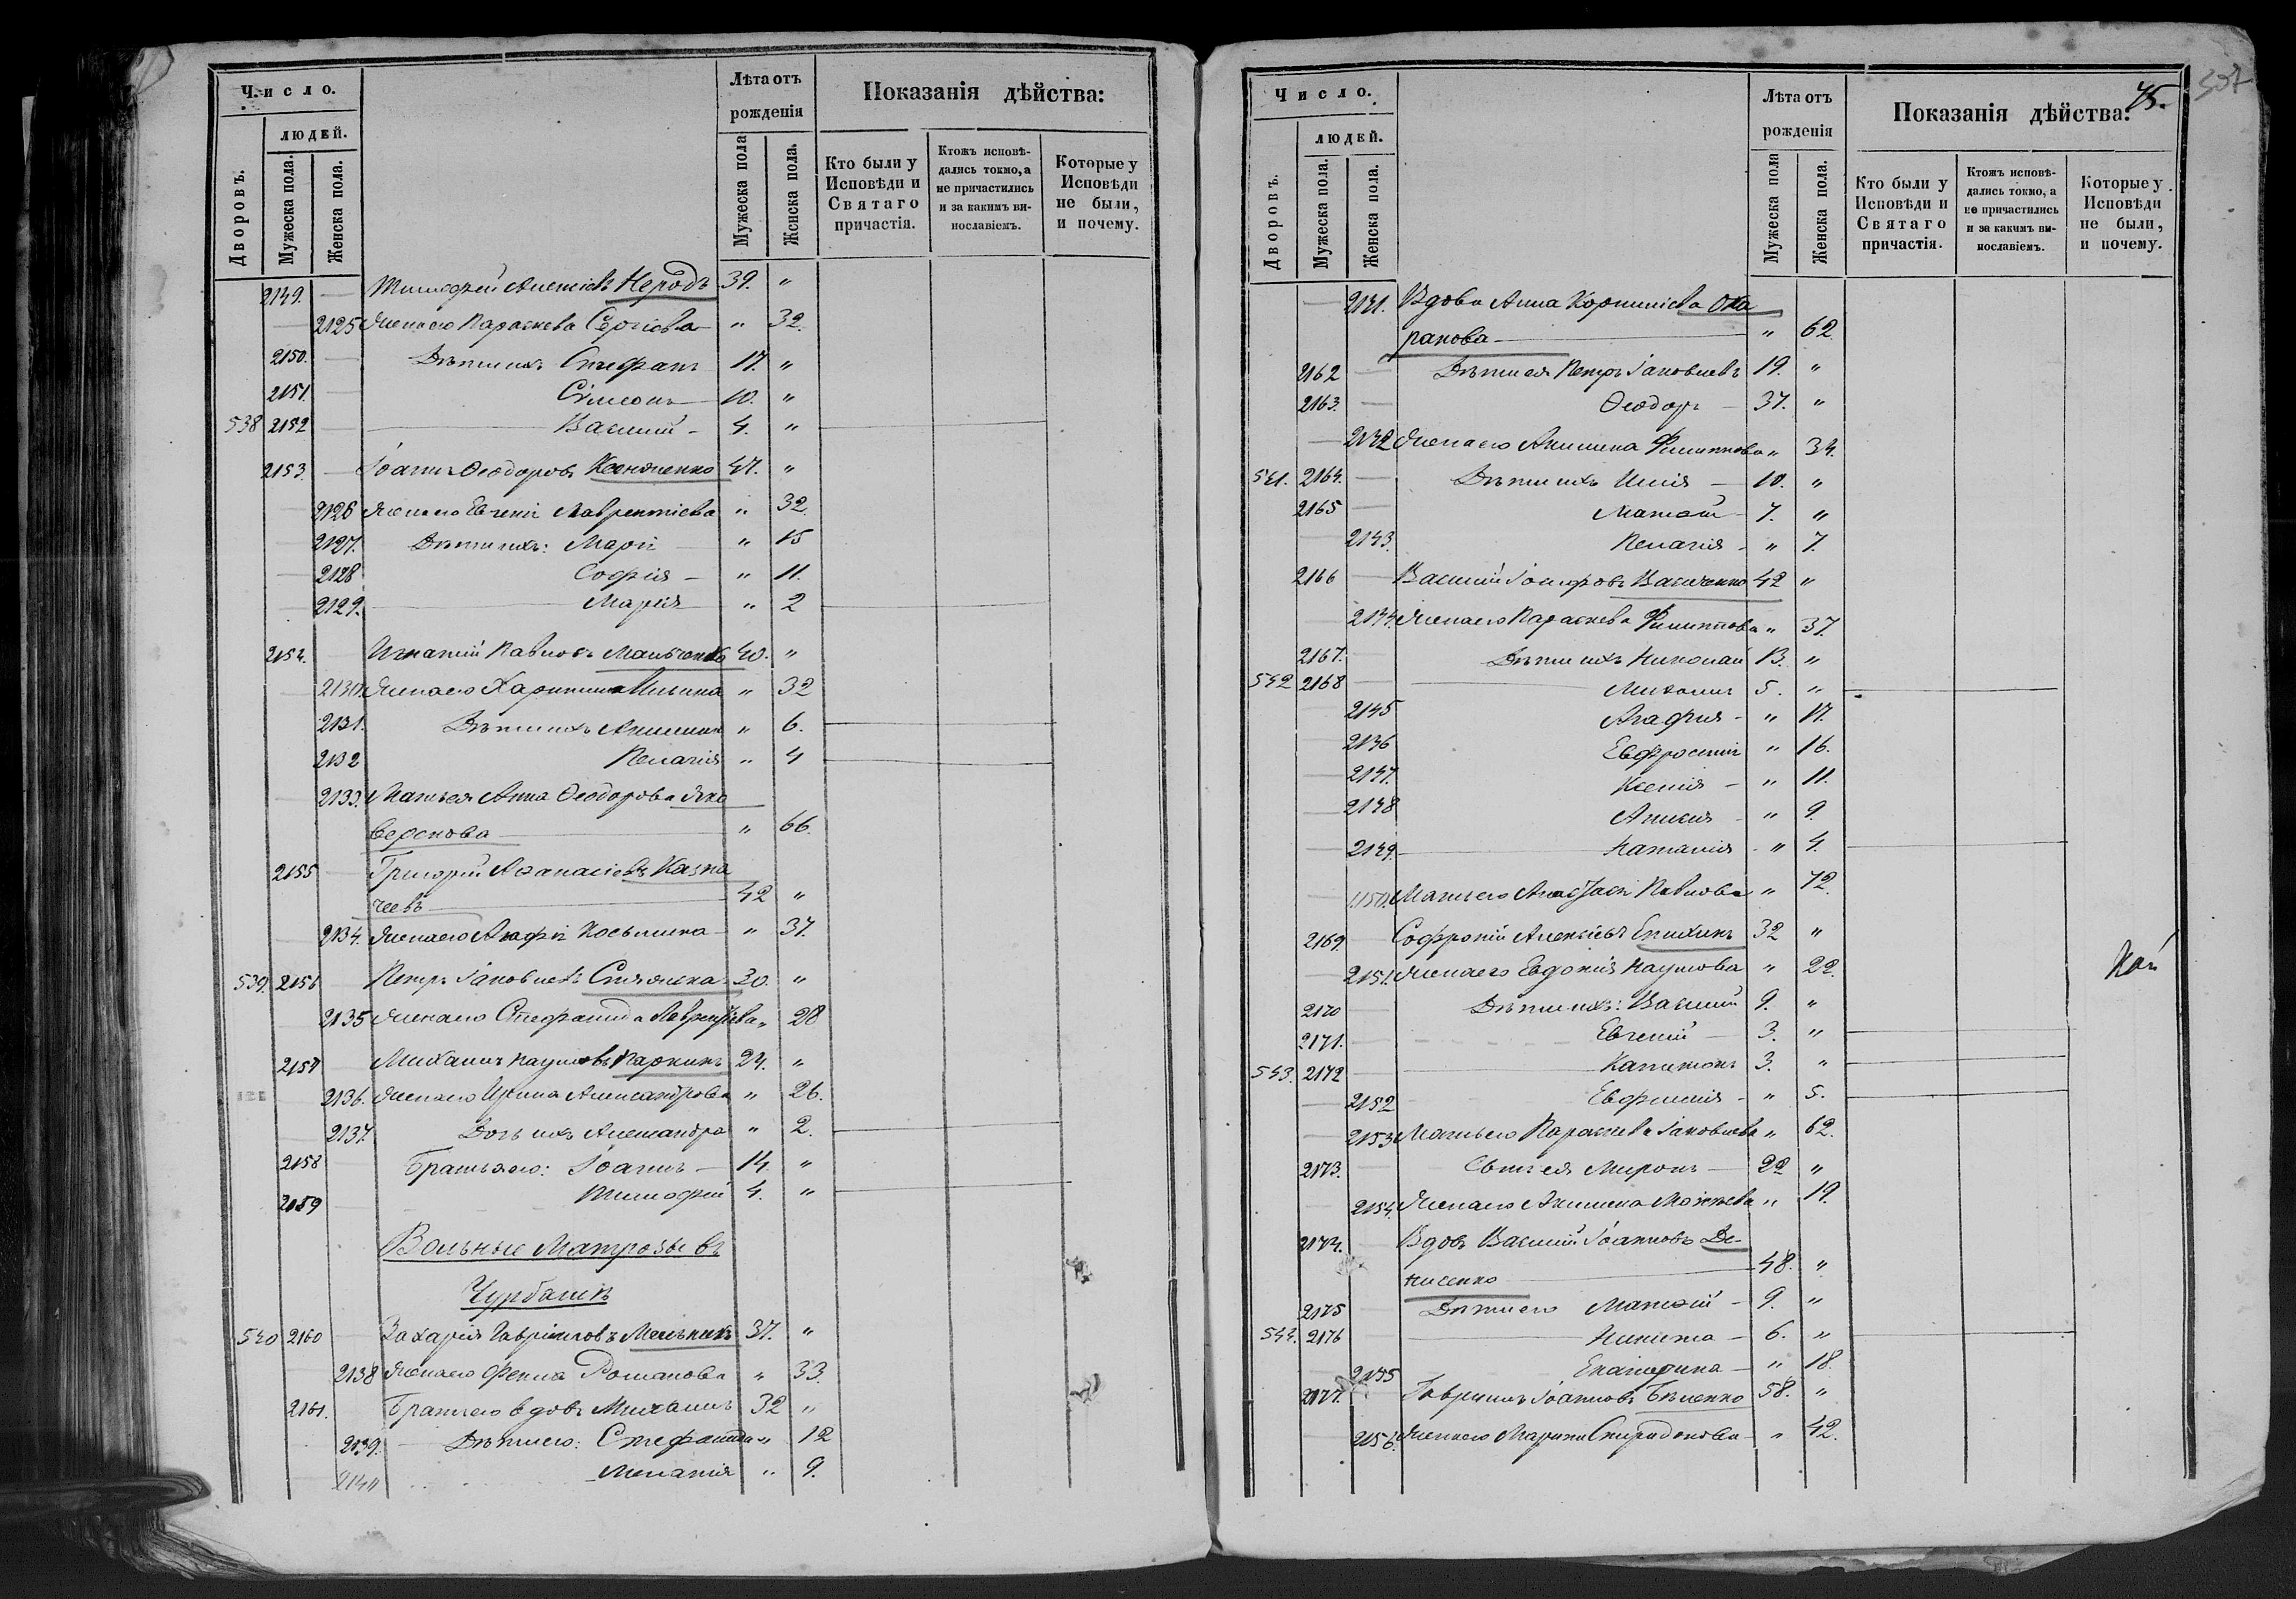 Число.
людей.
Дворовъ.
Мужеска пола.
Женска пола.
Лѣта отъ
рожденія
Мужеска пола
Женска пола.
Показанія дѣйства:
Кто были у
Исповѣди и
Святаго
причастія.
Ктожъ исповѣ-
дались токмо, а
не причастились
и за какимъ ви-
нославіемъ.
Которые у
Исповѣди
не были,
и почему.
2149. Тимофей Алексіевъ Неродъ 39. "
2125 Жена его Параскева Сергіева " 32.
2150. Дѣти ихъ Стефанъ 17. "
2151. Симеонъ 10. "
538 2152 Василій 4. "
2153. Іоаннъ Ѳеодоровъ 47. "
2126 Жена его Евгенія Лаврентіева " 32.
2127. Дѣти ихъ: Марія " 15
2128 Софія " 11.
2129. Марія " 2
2154. Игнатій Павловъ 40. "
2130. Жена его Харитина Ильина " 32
2131. Дѣти ихъ Акилина " 6.
2132 Пелагія " 4
2133. Мать ея Анна Ѳеодорова Яко
" 66.
2155 Григорій Аѳанасіевъ Казна
чеевъ 42 "
2134. Жена его Агафія Косьмина " 37.
539. 2156 Петръ Іаковлевъ 30. "
2135 Жена его Стефанида Лаврентіева " 28
2157 Михаилъ Наумовъ Паркинъ 24. "
2136. Жена его Ирина Александрова " 26.
2137. Дочь ихъ Александра " 2.
2158 Братья его: Іоаннъ 14. "
2159 Тимофей 4. "
Вольные Матрозы въ
Чурбашѣ
540 2160 Захарія Гавріиловъ Мельникъ 37. "
2138 Жена его Фекла Романова " 33.
2161. Братъ его вдовъ Михаилъ 32 "
2139. Дѣти его: Стефанида " 12
2140 Меланія " 9.
Число.
людей.
Дворовъ.
Мужеска пола.
Женска пола.
Лѣта отъ
рожденія
Мужеска пола
Женска пола.
Показанія дѣйства:
75.
307
Кто были у
Исповѣди и
Святаго
причастія.
Ктожъ исповѣ-
дались токмо, а
не причастились
и за какимъ ви-
нославіемъ.
Которые у
Исповѣди
не были,
и почему.
2141. Вдова Анна Корнилиева
" 62.
2162 Дѣти ея Петръ Іаковлевъ 19. "
2163. Ѳеодоръ 37. "
2142 Жена его Акилина Филиппова " 34.
541. 2164. Дѣти ихъ Илія 10. "
2165 Матѳій 7. "
2143. Пелагія " 7.
2166 Василій Іосифовъ Василенко 42 "
2144. Жена его Параскева Филиппова " 37.
2167. Дѣти ихъ Николай 13. "
542 2168 Михаилъ 5. "
2145 Агафія " 17.
2146 Евфросинія " 16.
2147. Ксенія " 11.
2148 Анисія " 9.
2149. Наталія " 4.
Мать его Анастасія Павлова " 72.
2169. Софроній Алексіевъ Епихинъ 32 "
2151. Жена его Евдокія Наумова " 22.
2170 Дѣти ихъ: Василій 9. "
2171. Евгеній 3. "
543. 2172 Капитонъ 3. "
2152 Евфимія " 5.
2153 Мать его Параскева Іаковлева " 62.
2173. Сынъ ея Миронъ 22 "
2154. Жена его Акилина Моисеева " 19.
2174. Вдовъ Василій Іоанновъ Де-
нисенко 48. "
2175 Дѣти его Матѳій 9. "
544. 2176 Никита 6. "
2155 Екатерина " 18.
2177. Гавріилъ Іоанновъ Бѣленко 58. "
2156. Жена его Марина Спиридонова " 42.